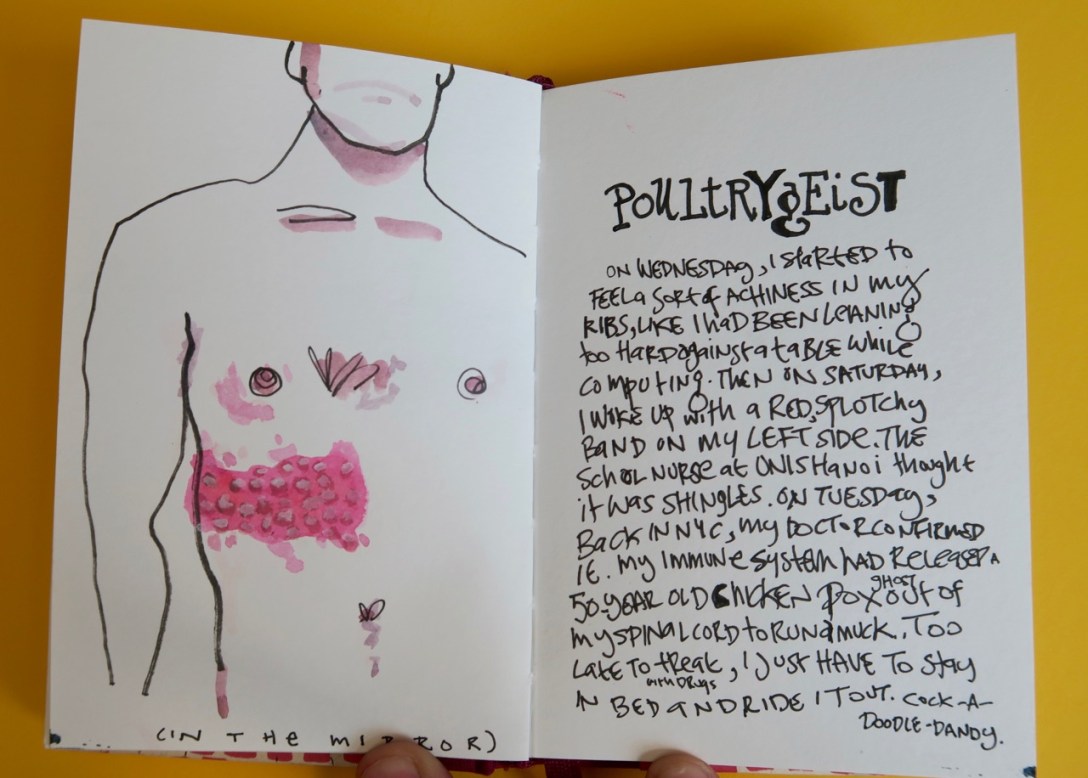 (IN THE MIRROR)
POULTRYGEIST
ON WEDNESDAY, I STARTED TO
FEEL A SORT OF ACHINESS IN MY
RIBS, LIKE I HAD BEEN LEANING
TOO HARD AGAINST A TABLE WHILE
COMPUTING. THEN ON SATURDAY,
I WOKE UP WITH A RED, SPLOTCHY
BAND ON MY LEFT SIDE. THE
SCHOOL NURSE AT UNIS HANOI THOUGHT
IT WAS SHINGLES. ON TUESDAY,
BACK IN NYC, MY DOCTOR CONFIRMED
IT. MY IMMUNE SYSTEM HAD RELEASED A
50-YEAR OLD CHICKEN POX GHOST OUT OF
MY SPINAL CORD TO RUN AMUCK. TOO
LATE TO TREAT WITH DRUGS, I JUST HAVE TO STAY
IN BED AND RIDE IT OUT. COCK-A-
DOODLE-DANDY.